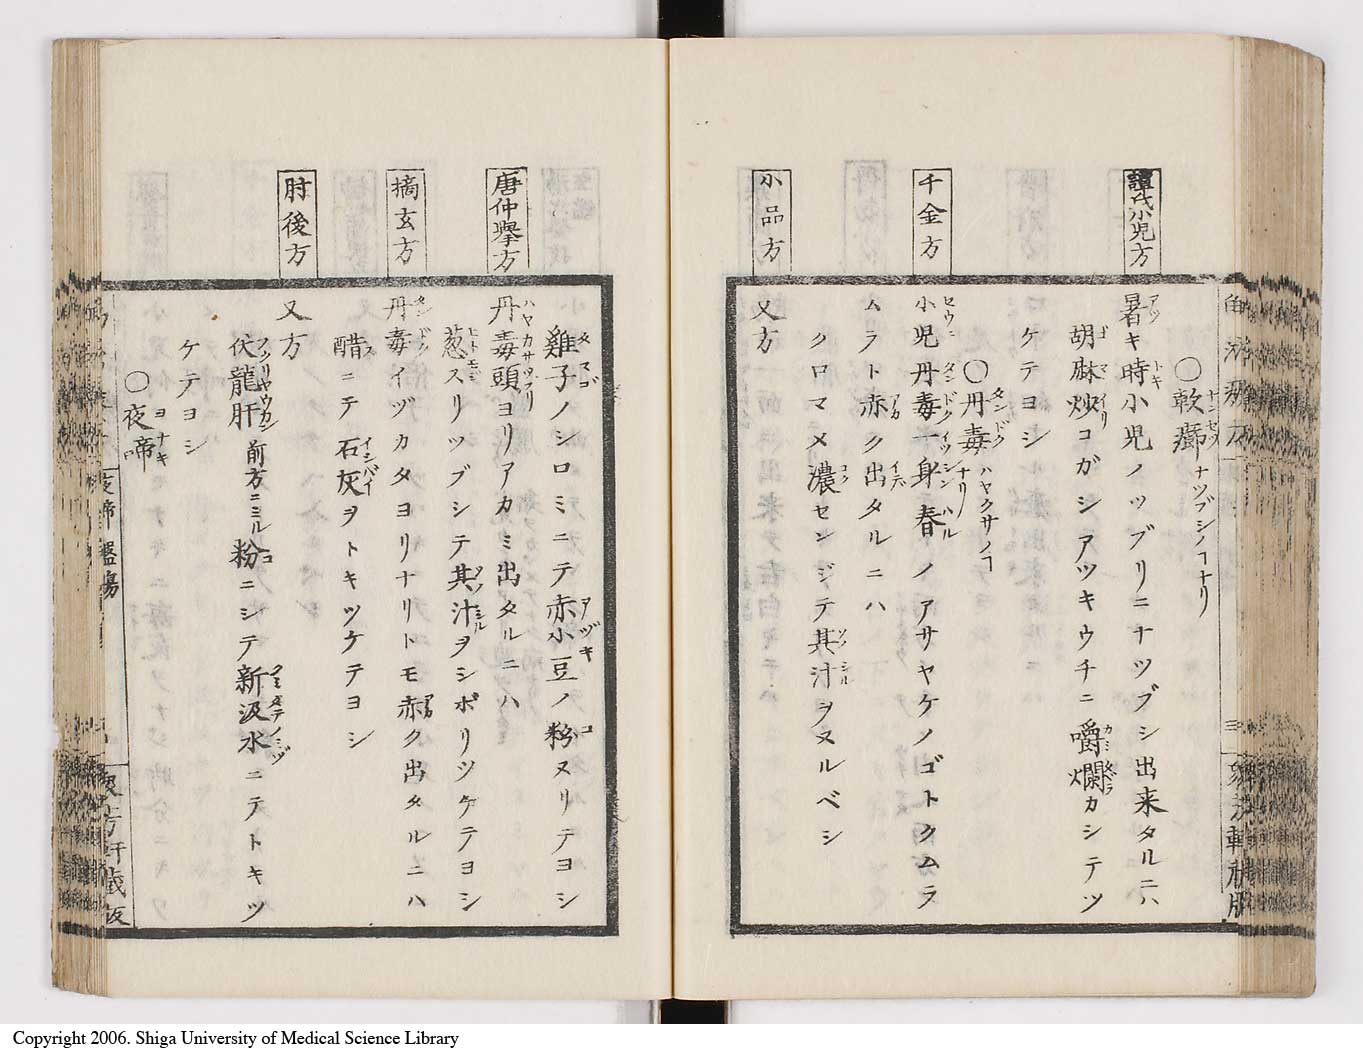 譚氏小兒方
千金方
小品方
○軟癤 ナツブシノコナリ
暑キ時小児ノツブリニナツブシ出来タルニハ
胡麻炒コガシアツキウチニ嚼爛カシテツ
ケテヨシ
○丹毒 ハヤクサノコナリ
小児丹毒一身春ノアサヤケノゴトクムラ
ムラト赤ク出タルニハ
クロマメ濃センジテ其汁ヲヌルベシ
又方
唐仲擧方
摘玄方
肘後方
雞子ノシロミニテ赤小豆ノ粉ヌリテヨシ
丹毒頭ヨリアカミ出タルニハ
葱スリツブシテ其汁ヲシボリツケテヨシ
丹毒イヅカタヨリナリトモ赤ク出タルニハ
醋ニテ石灰ヲトキツケテヨシ
又方
伏龍肝 前方ニミル 粉ニシテ新汲水ニテトキツ
ケテヨシ
○夜啼
Copyright 2006. Shiga University of Medical Science Library